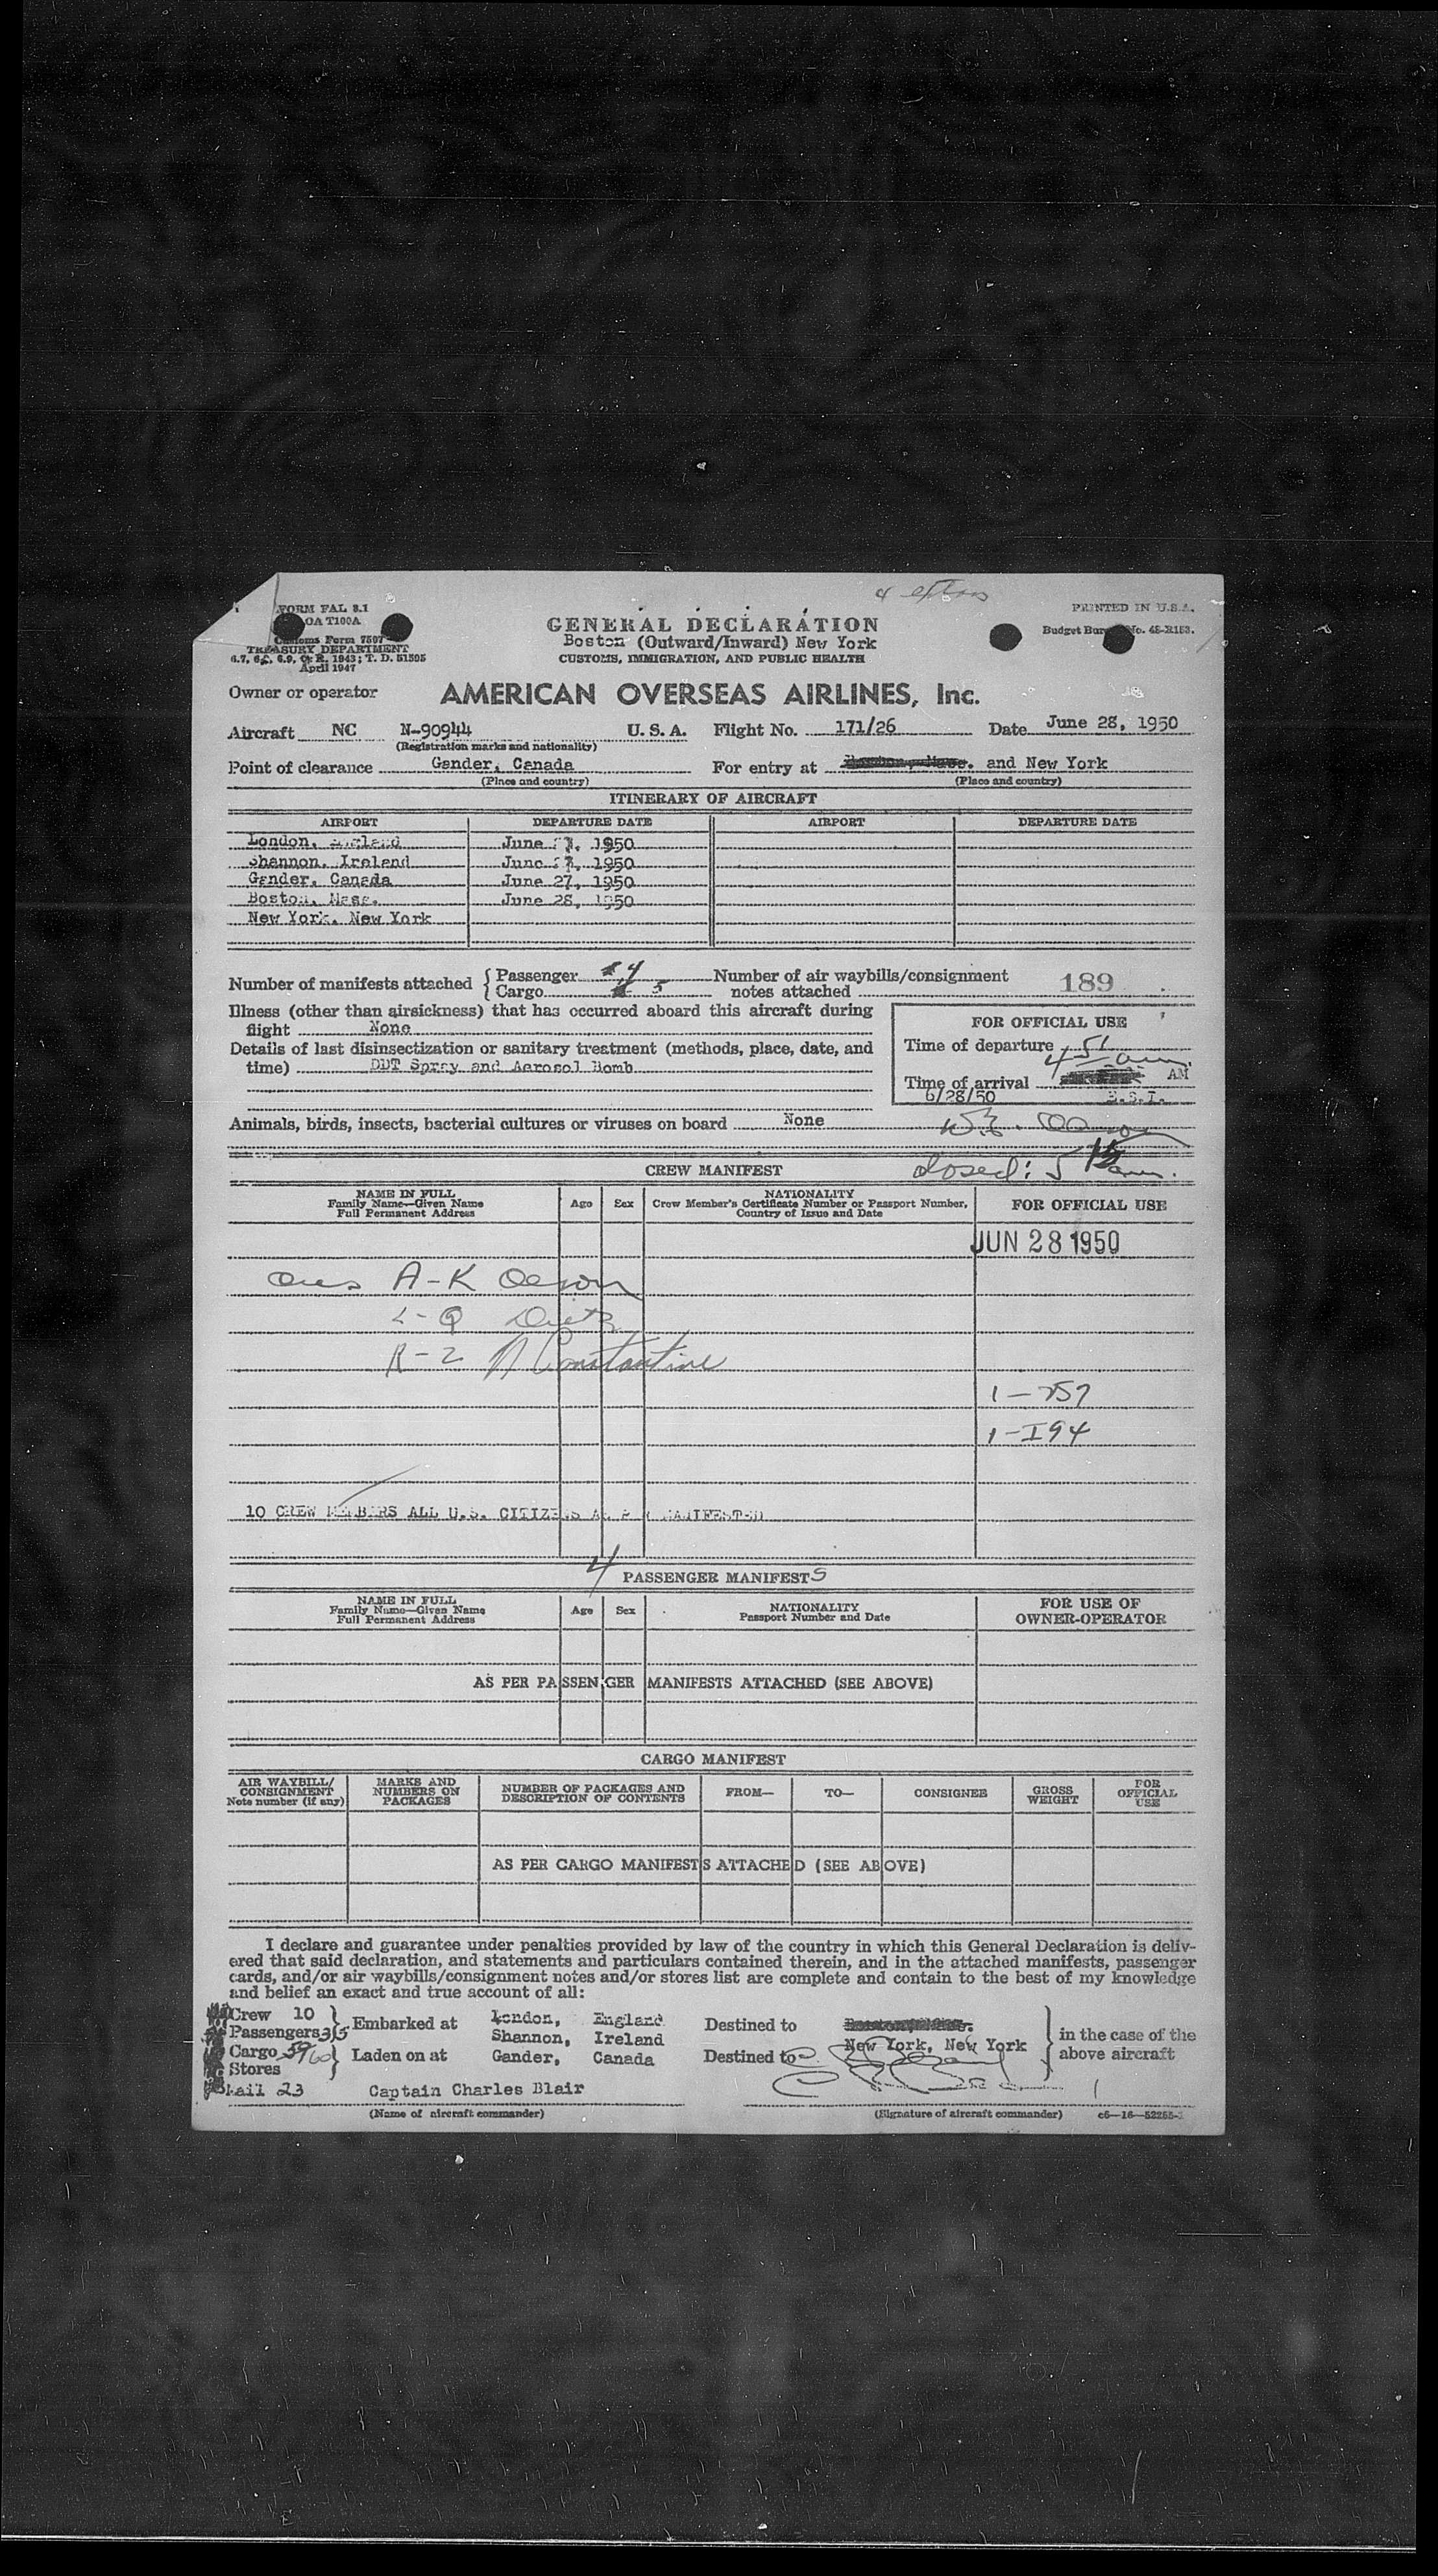 FORM FAL 3.1
OA T100A
Customs Form 7507
TREASURY DEPARTMENT
April 1947
PRINTED IN U.S.A.
Budget Bureau No. 48-R153.
GENERAL DECLARATION
Boston (Outward/Inward) New York
CUSTOMS, IMMIGRATION, AND PUBLIC HEALTH
Owner or operator AMERICAN OVERSEAS AIRLINES, Inc.
Aircraft NC N-90944 U. S. A. Flight No. 171/26 Date June 28, 1950
(Registration marks and nationality)
Point of clearance Gander, Canada For entry at and New York
(Place and country) (Place and country)
ITINERARY OF AIRCRAFT
AIRPORT DEPARTURE DATE AIRPORT DEPARTURE DATE
London, England June 1950
Shannon, Ireland June 1950
Gander, Canada June 27, 1950
Boston, Mass. June 28, 1950
New York, New York
Number of manifests attached { Passenger 4 Number of air waybills/consignment 189
Cargo 5 notes attached
Illness (other than airsickness) that has occurred aboard this aircraft during
flight None
Details of last disinsectization or sanitary treatment (methods, place, date, and
time) DDT Spray and Aerosol Bomb
FOR OFFICIAL USE
Time of departure
451 am
Time of arrival AM
6/28/50 E.S.T.
Animals, birds, insects, bacterial cultures or viruses on board None
CREW MANIFEST closed: 5 am.
NAME IN FULL
Family Name—Given Name
Full Permanent Address
Age Sex
NATIONALITY
Crew Member's Certificate Number or Passport Number,
Country of Issue and Date
FOR OFFICIAL USE
JUN 28 1950
A-K Olson
L-Q Dietz
R-Z N Constantine
1-757
1-I94
10 CREW MEMBERS ALL U.S. CITIZENS AS PER MANIFESTED
4 PASSENGER MANIFESTS
NAME IN FULL
Family Name—Given Name
Full Permanent Address
Age Sex
NATIONALITY
Passport Number and Date
FOR USE OF
OWNER-OPERATOR
AS PER PASSENGER MANIFESTS ATTACHED (SEE ABOVE)
CARGO MANIFEST
AIR WAYBILL/
CONSIGNMENT
Note number (if any)
MARKS AND
NUMBERS ON
PACKAGES
NUMBER OF PACKAGES AND
DESCRIPTION OF CONTENTS
FROM— TO— CONSIGNEE
GROSS
WEIGHT
FOR
OFFICIAL
USE
AS PER CARGO MANIFESTS ATTACHED (SEE ABOVE)
I declare and guarantee under penalties provided by law of the country in which this General Declaration is deliv-
ered that said declaration, and statements and particulars contained therein, and in the attached manifests, passenger
cards, and/or air waybills/consignment notes and/or stores list are complete and contain to the best of my knowledge
and belief an exact and true account of all:
Crew 10 } Embarked at London, England Destined to } in the case of the
Passengers Shannon, Ireland New York, New York above aircraft
Cargo } Laden on at Gander, Canada Destined to
Stores
Mail 23 Captain Charles Blair
(Name of aircraft commander) (Signature of aircraft commander) c6—16—52255-1